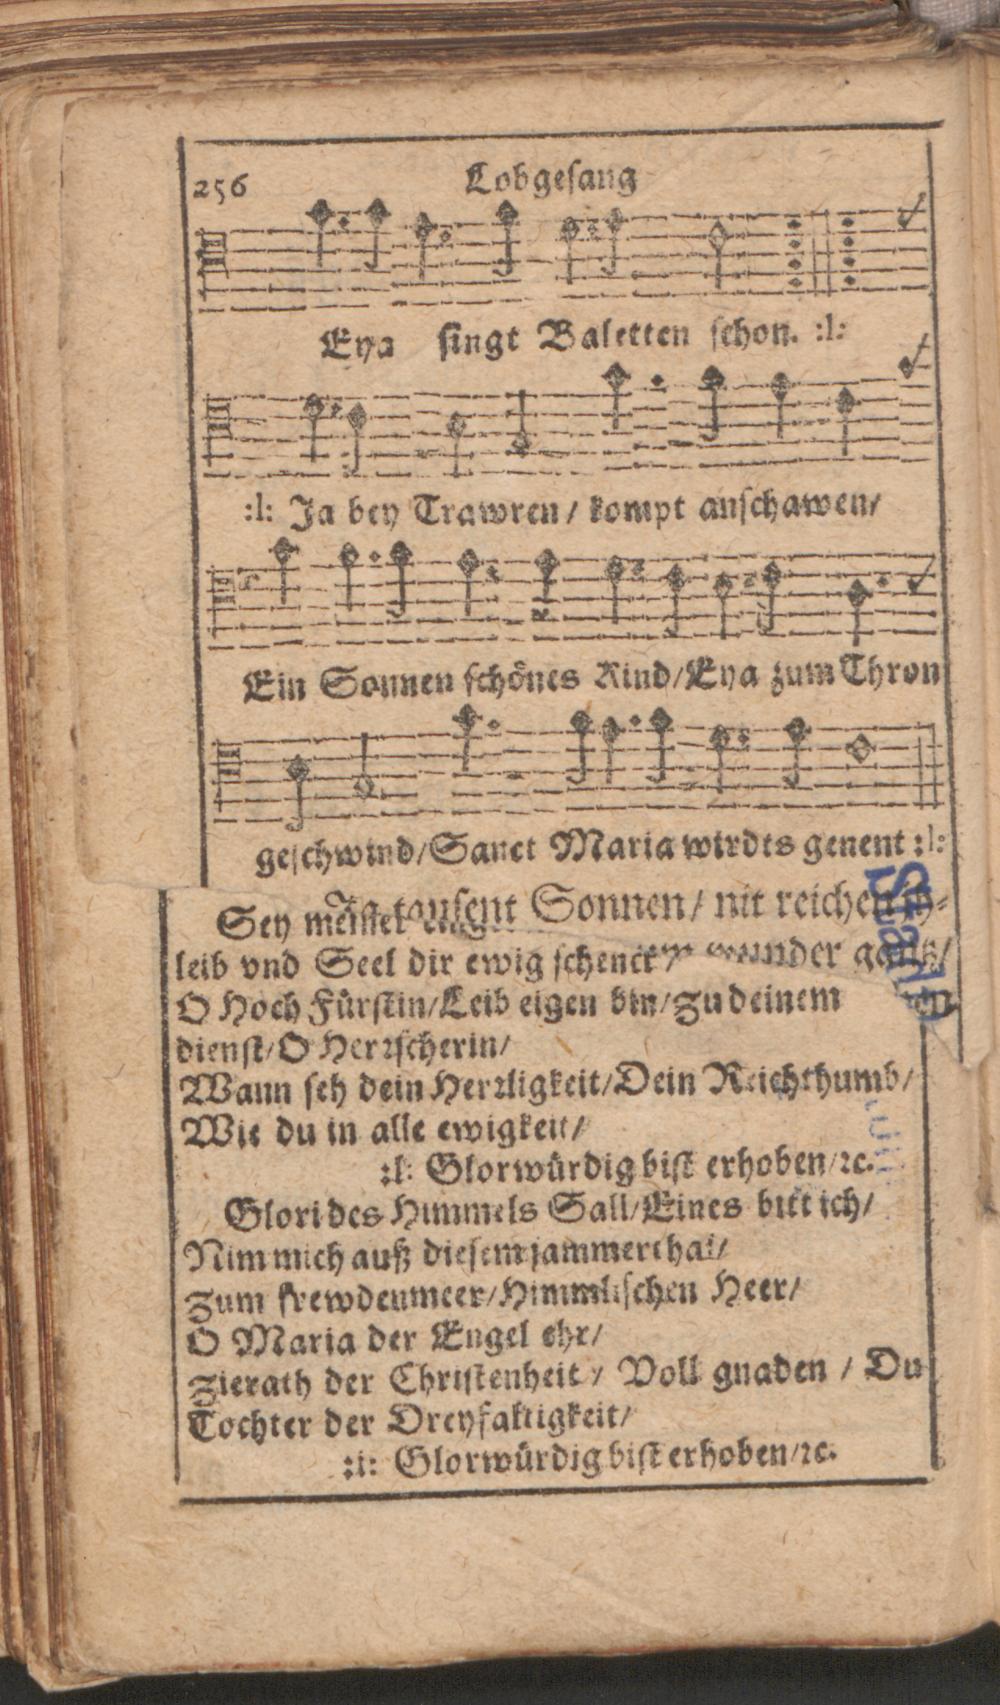 256 Lobgesang
Eya singt Baletten schon. :l:
:l: Ja bey Trawren / kompt anschawen/
Ein Sonnen schönes Kind/Eya zum Thron
geschwind/Sanct Maria wirdts genent :l:
Ja tausent Sonnen/ nit reichen
Sey meister
leib vnd Seel dir ewig schenck wunder gantz/
O Hoch Fürstin/Leib eigen bin/zu deinem
dienst/O Herzscherin/
Wann seh dein Herzligkeit/Dein Reichthumb/
Wie du in alle ewigkeit/
:l: Glorwürdig bist erhoben/ꝛc.
Glori des Himmels Sall/Eines bitt ich/
Nim mich auß diesem jammerthal/
Zum frewdenmeer/Himmlischen Heer/
O Maria der Engel ehr/
Zierath der Christenheit / Voll gnaden / Du
Tochter der Dreyfaltigkeit/
:l: Glorwürdig bist erhoben/ꝛc.